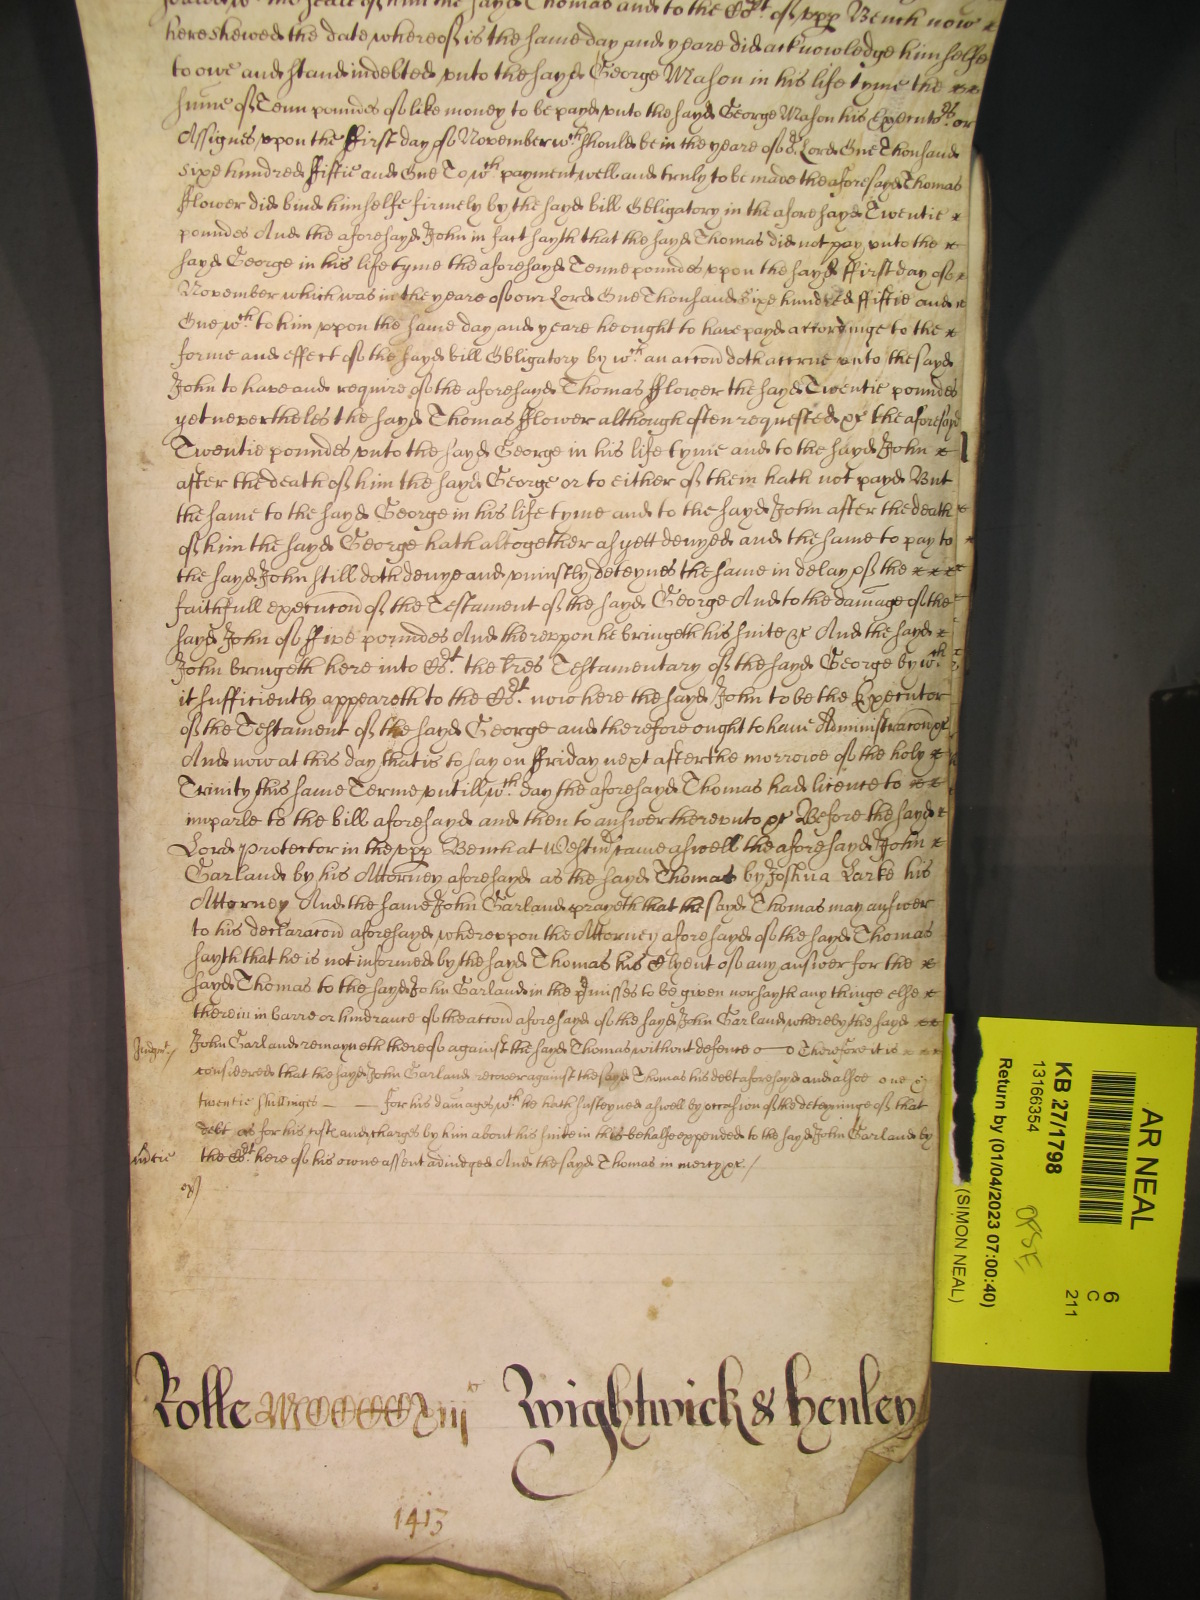 sealed wth the seale of him the sayd Thomas and to the Cort of vpp Bench now
here shewed the date whereof is the same day and yeare did acknowledge himselfe
to owe and stand indebted vnto the sayd George Mason in his life tyme the
sume of Tenn poundes of like money to be payd vnto the sayd George Mason his Executors or
Assignes vpon the ffirst day of November wch should be in the yeare of or Lord One Thousand
Sixe hundred ffiftie and One To wch payment well and truly to be made the aforesayd Thomas
fflower did bind himselfe firmely by the sayd bill Obligatory in the aforesayd Twentie
poundes And the aforesayd John in fact sayth that the sayd Thomas did not pay vnto the
sayd George in his life tyme the aforesayd Tenne poundes vpon the sayd ffirst day of
November which was in the yeare of our Lord One Thousand Sixe hundred ffiftie and
One wch to him vpon the same day and yeare he ought to have payd accordinge to the
forme and effect of the sayd bill Obligatory by wch an accon doth accrue vnto the sayd
John to have and require of the aforesayd Thomas fflower the sayd Twentie poundes
yet neverthelesse the sayd Thomas fflower although often requested &c the aforesayd
Twentie poundes vnto the sayd George in his life tyme and to the sayd John
after the death of him the sayd George or to either of them hath not payd But
the same to the sayd George in his life tyme and to the sayd John after the death
of him the sayd George hath altogether as yett denyed and the same to pay to
the sayd John still doth denye and vniustly deteynes the same in delay of the
faithfull execucon of the Testament of the sayd George And to the damage of the
sayd John of ffive poundes And therevpon he bringeth his suite &c And the sayd
John bringeth here into Cort the lres Testamentary of the sayd George by wch
it sufficiently appeareth to the Cort now here the sayd John to be the Executor
of the Testament of the sayd George and therefore ought to haue Administracon &c
And now at this day that is to say on ffriday next after the morrowe of the holy
Trinity this same Terme vntill wch day the aforesayd Thomas had licence to
imparle to the bill aforesayd and then to answer therevnto &c Before the sayd
Lord Protector in the vpp Bench at Westm came aswell the aforesayd John
Garland by his Attorney aforesayd as the sayd Thomas by Joshua Larke his
Attorney And the same John Garland prayeth that the sayd Thomas may answer
to his declaracon aforesayd wherevpon the Attorney aforesayd of the sayd Thomas
sayth that he is not informed by the sayd Thomas his Clyent of any answer for the
sayd Thomas to the sayd John Garland in the pmisses to be given nor sayth any thinge else
therein in barre or hindrance of the accon aforesayd of the sayd John Garland whereby the sayd
Judgmt John Garland remayneth thereof against the sayd Thomas without defence Therefore it is
considered that the sayd John Garland recover against the sayd Thomas his debt aforesayd and alsoe one &
twentie shillinges for his damages wch he hath susteyned aswell by occasion of the deteyninge of that
debt as for his costs and charges by him about his suite in this behalfe expended to the sayd John Garland by
the Cort here of his owne assent adiudged And the sayd Thomas in mercy &c
Rolle MCCCCXiij Wightwick & Henley
1413
AR NEAL
6
C
211
KB 27/1798
13166354
Return by (01/04/2023 07:00:40)
(SIMON NEAL)